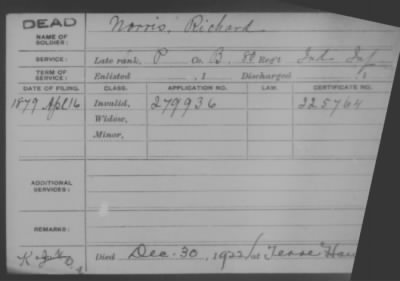 DEAD
NAME OF SOLDIER: Norris, Richard
SERVICE: Late rank, P Co. B, 80 Reg't Ind. Inf
TERM OF SERVICE: Enlisted , 1 Discharged , 1
DATE OF FILING. CLASS. APPLICATION NO. LAW. CERTIFICATE NO.
1879 Apl 16 Invalid, 279936 225764
Widow,
Minor,
ADDITIONAL SERVICES:
REMARKS:
Died Dec. 30, 1922 at Terre Hau